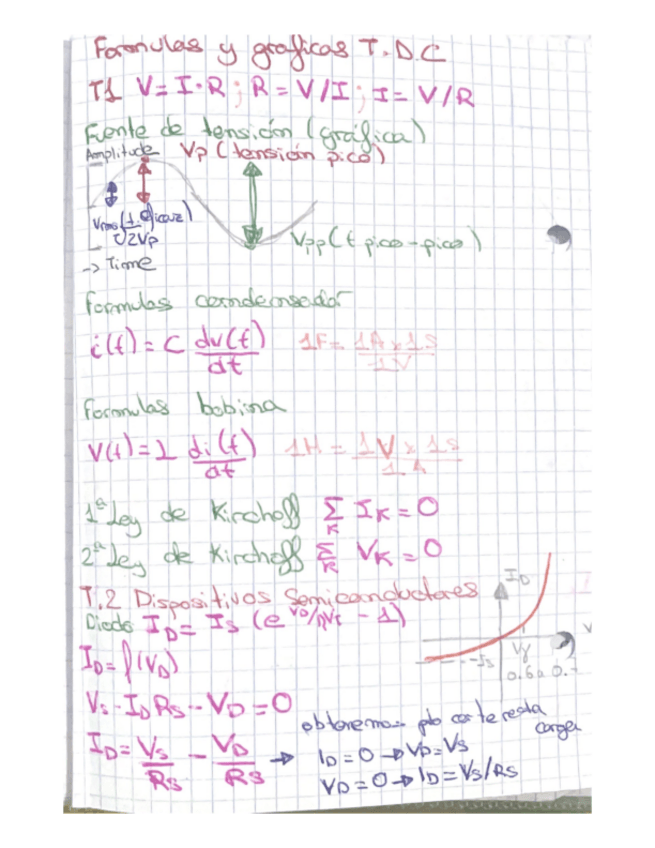 Formulas y graficas T.D.C
T1 V=I·R; R=V/I; I=V/R
Fuente de tensión (gráfica)
Amplitude Vp (tensión pico)
Vrms
√2Vp
Vpp (t pico-pico)
-> Time
formulas condensador
i(t) = C dv(t)/dt 1F = 1A x 1S/1V
formulas bobina
V(t) = L di(t)/dt 1H = 1V x 1s/1A
1ª Ley de Kirchoff Σ_K I_K = 0
2ª Ley de Kirchoff Σ_K V_K = 0
T.2 Dispositivos Semiconductores
Diodo I_D = I_S (e^VD/ηVT - 1)
I_D
-Is
Vγ
0.6 a 0.7
I_D = f(V_D)
Vs - I_D R_S - V_D = 0
obtenemos pto corte recta
carga
I_D = Vs/Rs - V_D/Rs → I_D = 0 → V_D = Vs
V_D = 0 → I_D = Vs/Rs